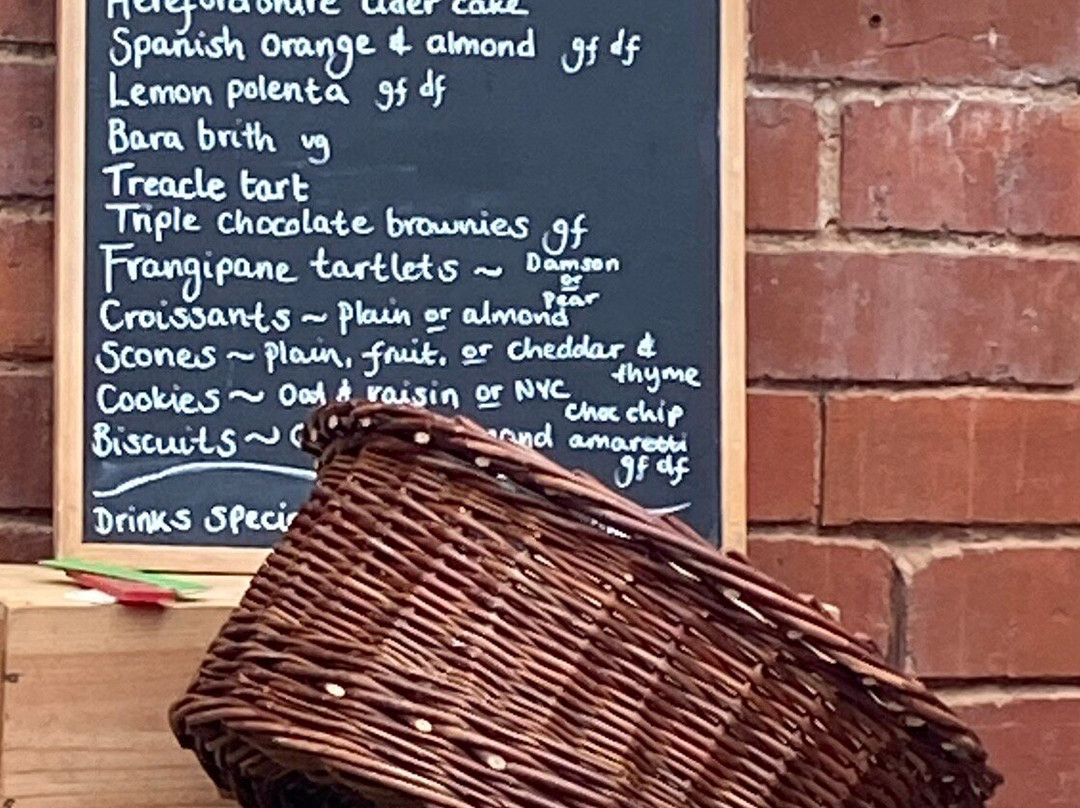 Herefordshire cider cake
Spanish orange & almond gf df
Lemon polenta gf df
Bara brith vg
Treacle tart
Triple chocolate brownies gf
Frangipane tartlets ~ Damson
or
Pear
Croissants ~ Plain or almond
Scones ~ Plain, fruit, or Cheddar &
thyme
Cookies ~ Oat & raisin or NYC
Choc chip
Biscuits ~ amaretti
gf df
Drinks